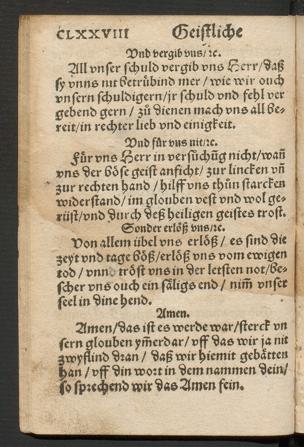 CLXXVIII Geistliche
Vnd vergib vns/ ꝛc.
All vnser schuld vergib vns Herr/ daß
sy vnns nit betrübind mer/ wie wir ouch
vnsern schuldigern/ jr schuld vnd fehl ver
gebend gern/ zů dienen mach vns all be-
reit/ in rechter lieb vnd einigkeit.
Vnd für vns nit/ ꝛc.
Für vns Herr in versůchũg nicht/ wañ
vns der böse geist anficht/ zur lincken vñ
zur rechten hand/ hilff vns thůn starcken
widerstand/ im glouben vest vnd wol ge-
rüst/ vnd durch deß heiligen geistes trost.
Sonder erlöß vns/ ꝛc.
Von allem übel vns erlöß/ es sind die
zeyt vnd tage böß/ erlöß vns vom ewigen
tod/ vnnd tröst vns in der letsten not/ be-
scher vns ouch ein säligs end/ nim̃ vnser
seel in dine hend.
Amen.
Amen/ das ist es werde war/ sterck vn
sern glouben ym̃erdar/ vff das wir ja nit
zwyflind dran/ daß wir hiemit gebätten
han/ vff din wort in dem nammen dein/
so sprechend wir das Amen fein.